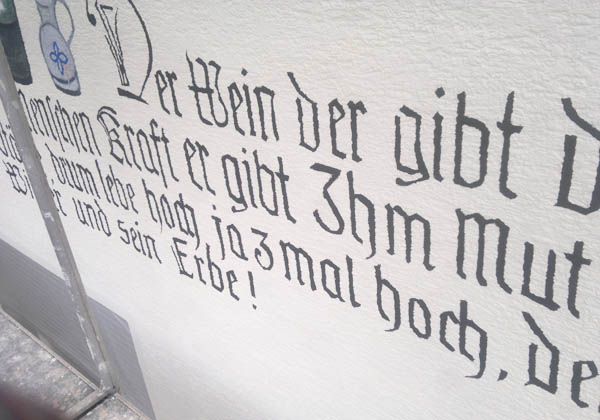 Der Wein der gibt d
Menschen Kraft er gibt Ihm Mut
drum lebe hoch ja 3 mal hoch, de
und sein Erbe!